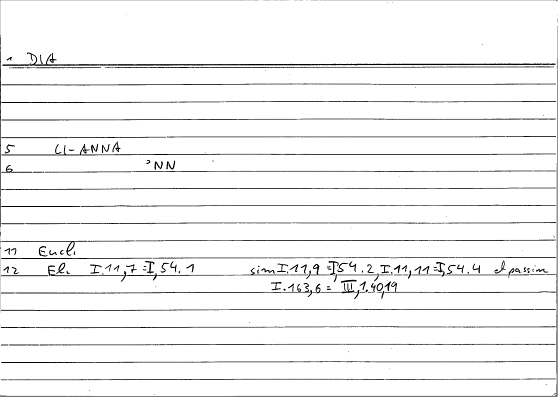 1 DIA
5 LI-ANNA
6 ʾNN
11 Eucl.
12 El. I.11,7 = I,54.1 sim I.11,9 = I,54.2, I.11,11 = I,54.4 et passim
I.163,6 = III,1.40,19